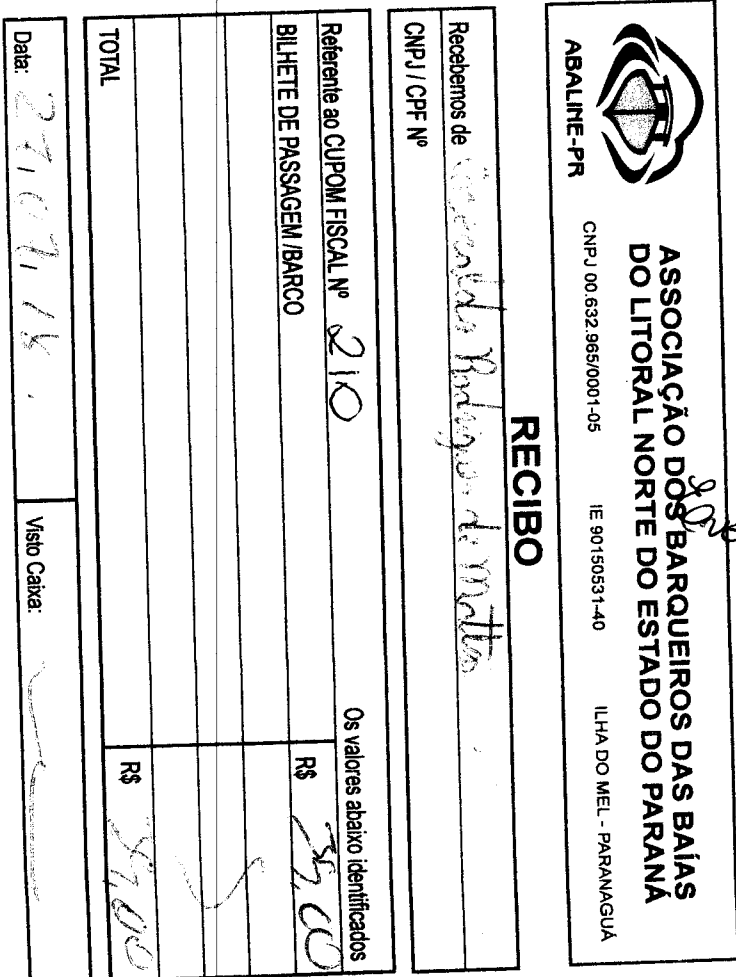 ASSOCIAÇÃO DOS BARQUEIROS DAS BAÍAS
DO LITORAL NORTE DO ESTADO DO PARANÁ
ABALINE-PR
CNPJ 00.632.965/0001-05 IE 90150531-40 ILHA DO MEL - PARANAGUÁ
RECIBO
Recebemos de Rodrigues de Mattos
CNPJ / CPF Nº
Referente ao CUPOM FISCAL Nº 210 Os valores abaixo identificados
BILHETE DE PASSAGEM /BARCO R$ 35,00
TOTAL R$ 35,00
Data: Visto Caixa: